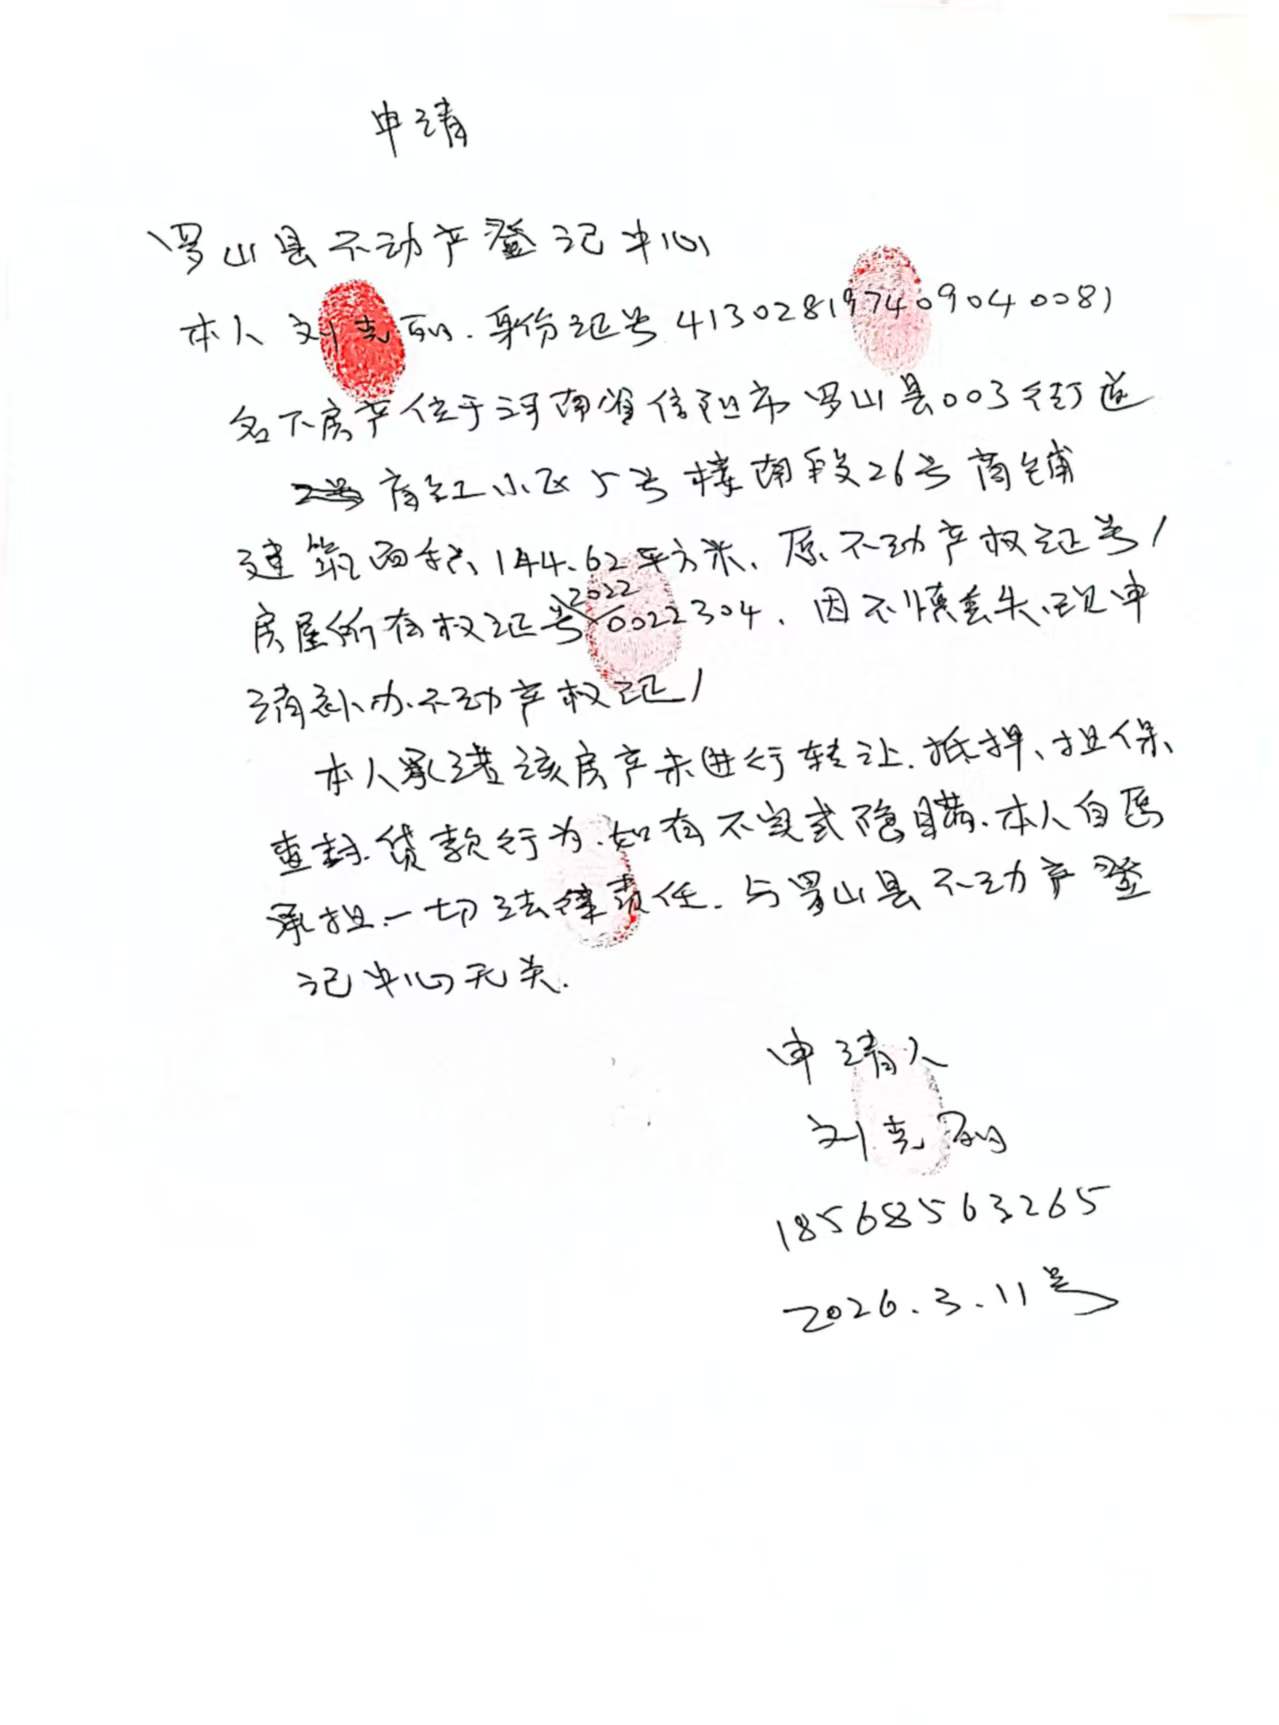 申请
罗山县不动产登记中心
本人刘克丽.身份证号413028197409040081
名下房产位于河南省信阳市罗山县003街道
小区5号楼南段26号商铺
建筑面积144.62平方米、原不动产权证号/
2022
房屋所有权证号0022304、因不慎丢失、现申
请补办不动产权证/
本人承诺该房产未进行转让.抵押、担保、
查封.贷款行为.如有不实或隐瞒.本人自愿
承担一切法律责任.与罗山县不动产登
记中心无关.
申请人
刘克丽
18568563265
2026.3.11号